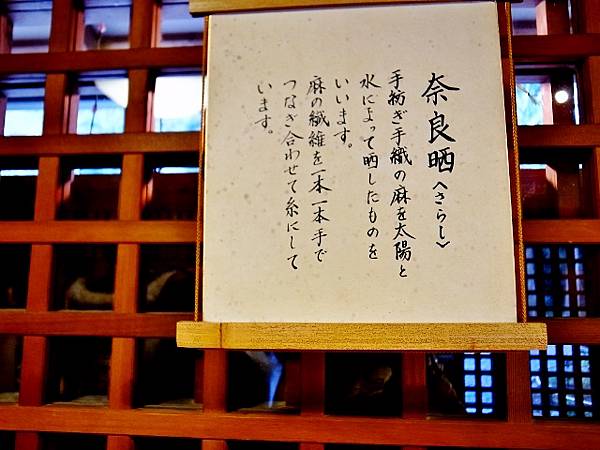 奈良晒〈さらし〉
手紡ぎ手織の麻を太陽と
水によって晒したものを
いいます。
麻の繊維を一本一本手で
つなぎ合わせて糸にして
います。